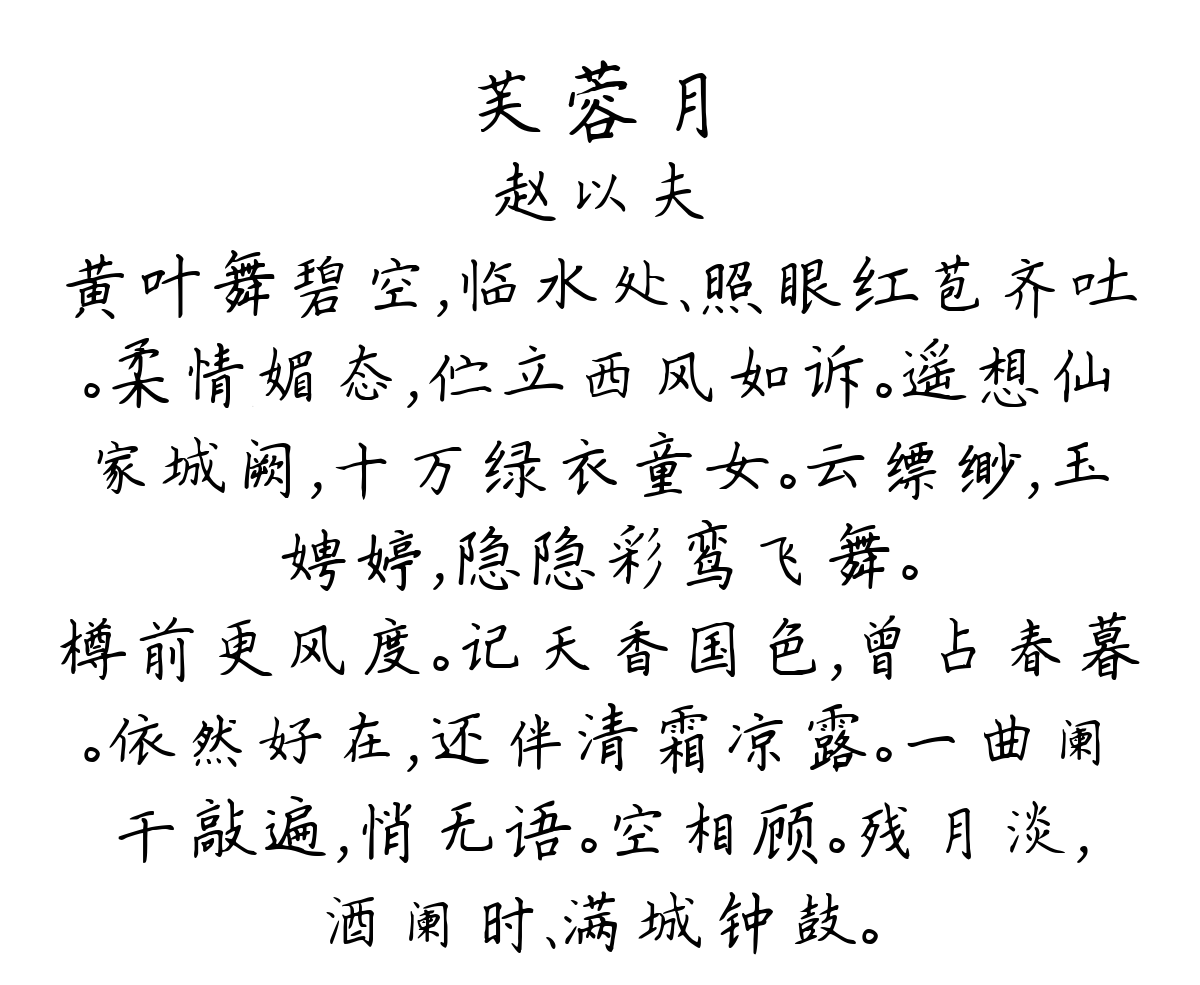 芙蓉月
赵以夫
黄叶舞碧空,临水处、照眼红苞齐吐
。柔情媚态,伫立西风如诉。遥想仙
家城阙,十万绿衣童女。云缥缈,玉
娉婷,隐隐彩鸾飞舞。
樽前更风度。记天香国色,曾占春暮
。依然好在,还伴清霜凉露。一曲阑
干敲遍,悄无语。空相顾。残月淡,
酒阑时、满城钟鼓。